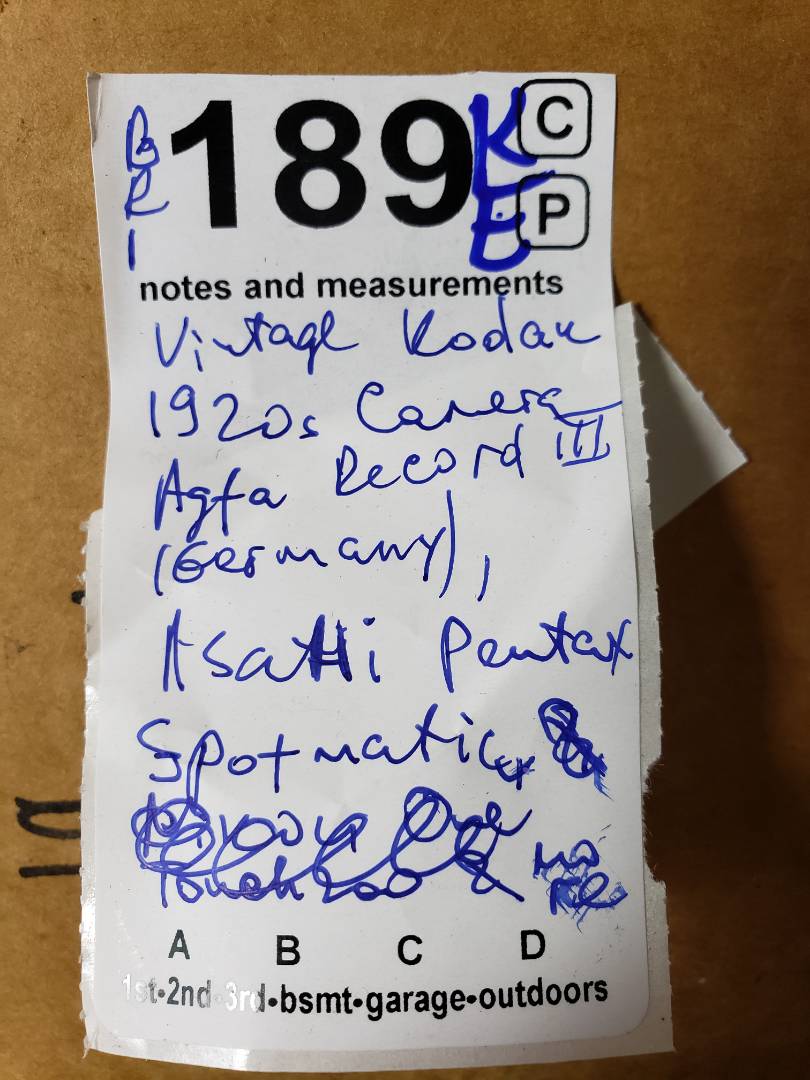 BRI 189 KE C P
notes and measurements
Vintage Kodak
1920s Camera
Agfa Record III
(Germany),
AsaHi Pentax
Spotmatic, &
One
Touch 200 & more
A B C D
1st•2nd•3rd•bsmt•garage•outdoors